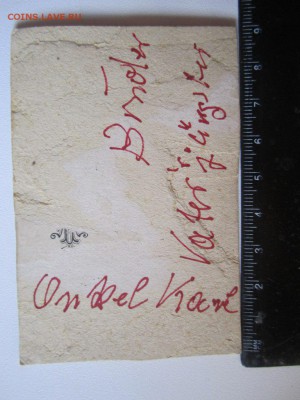 COINS.LAVE.RU
Bruder
Vaters jüngster
Onkel Karl
9
8
7
6
5
4
3
2
1